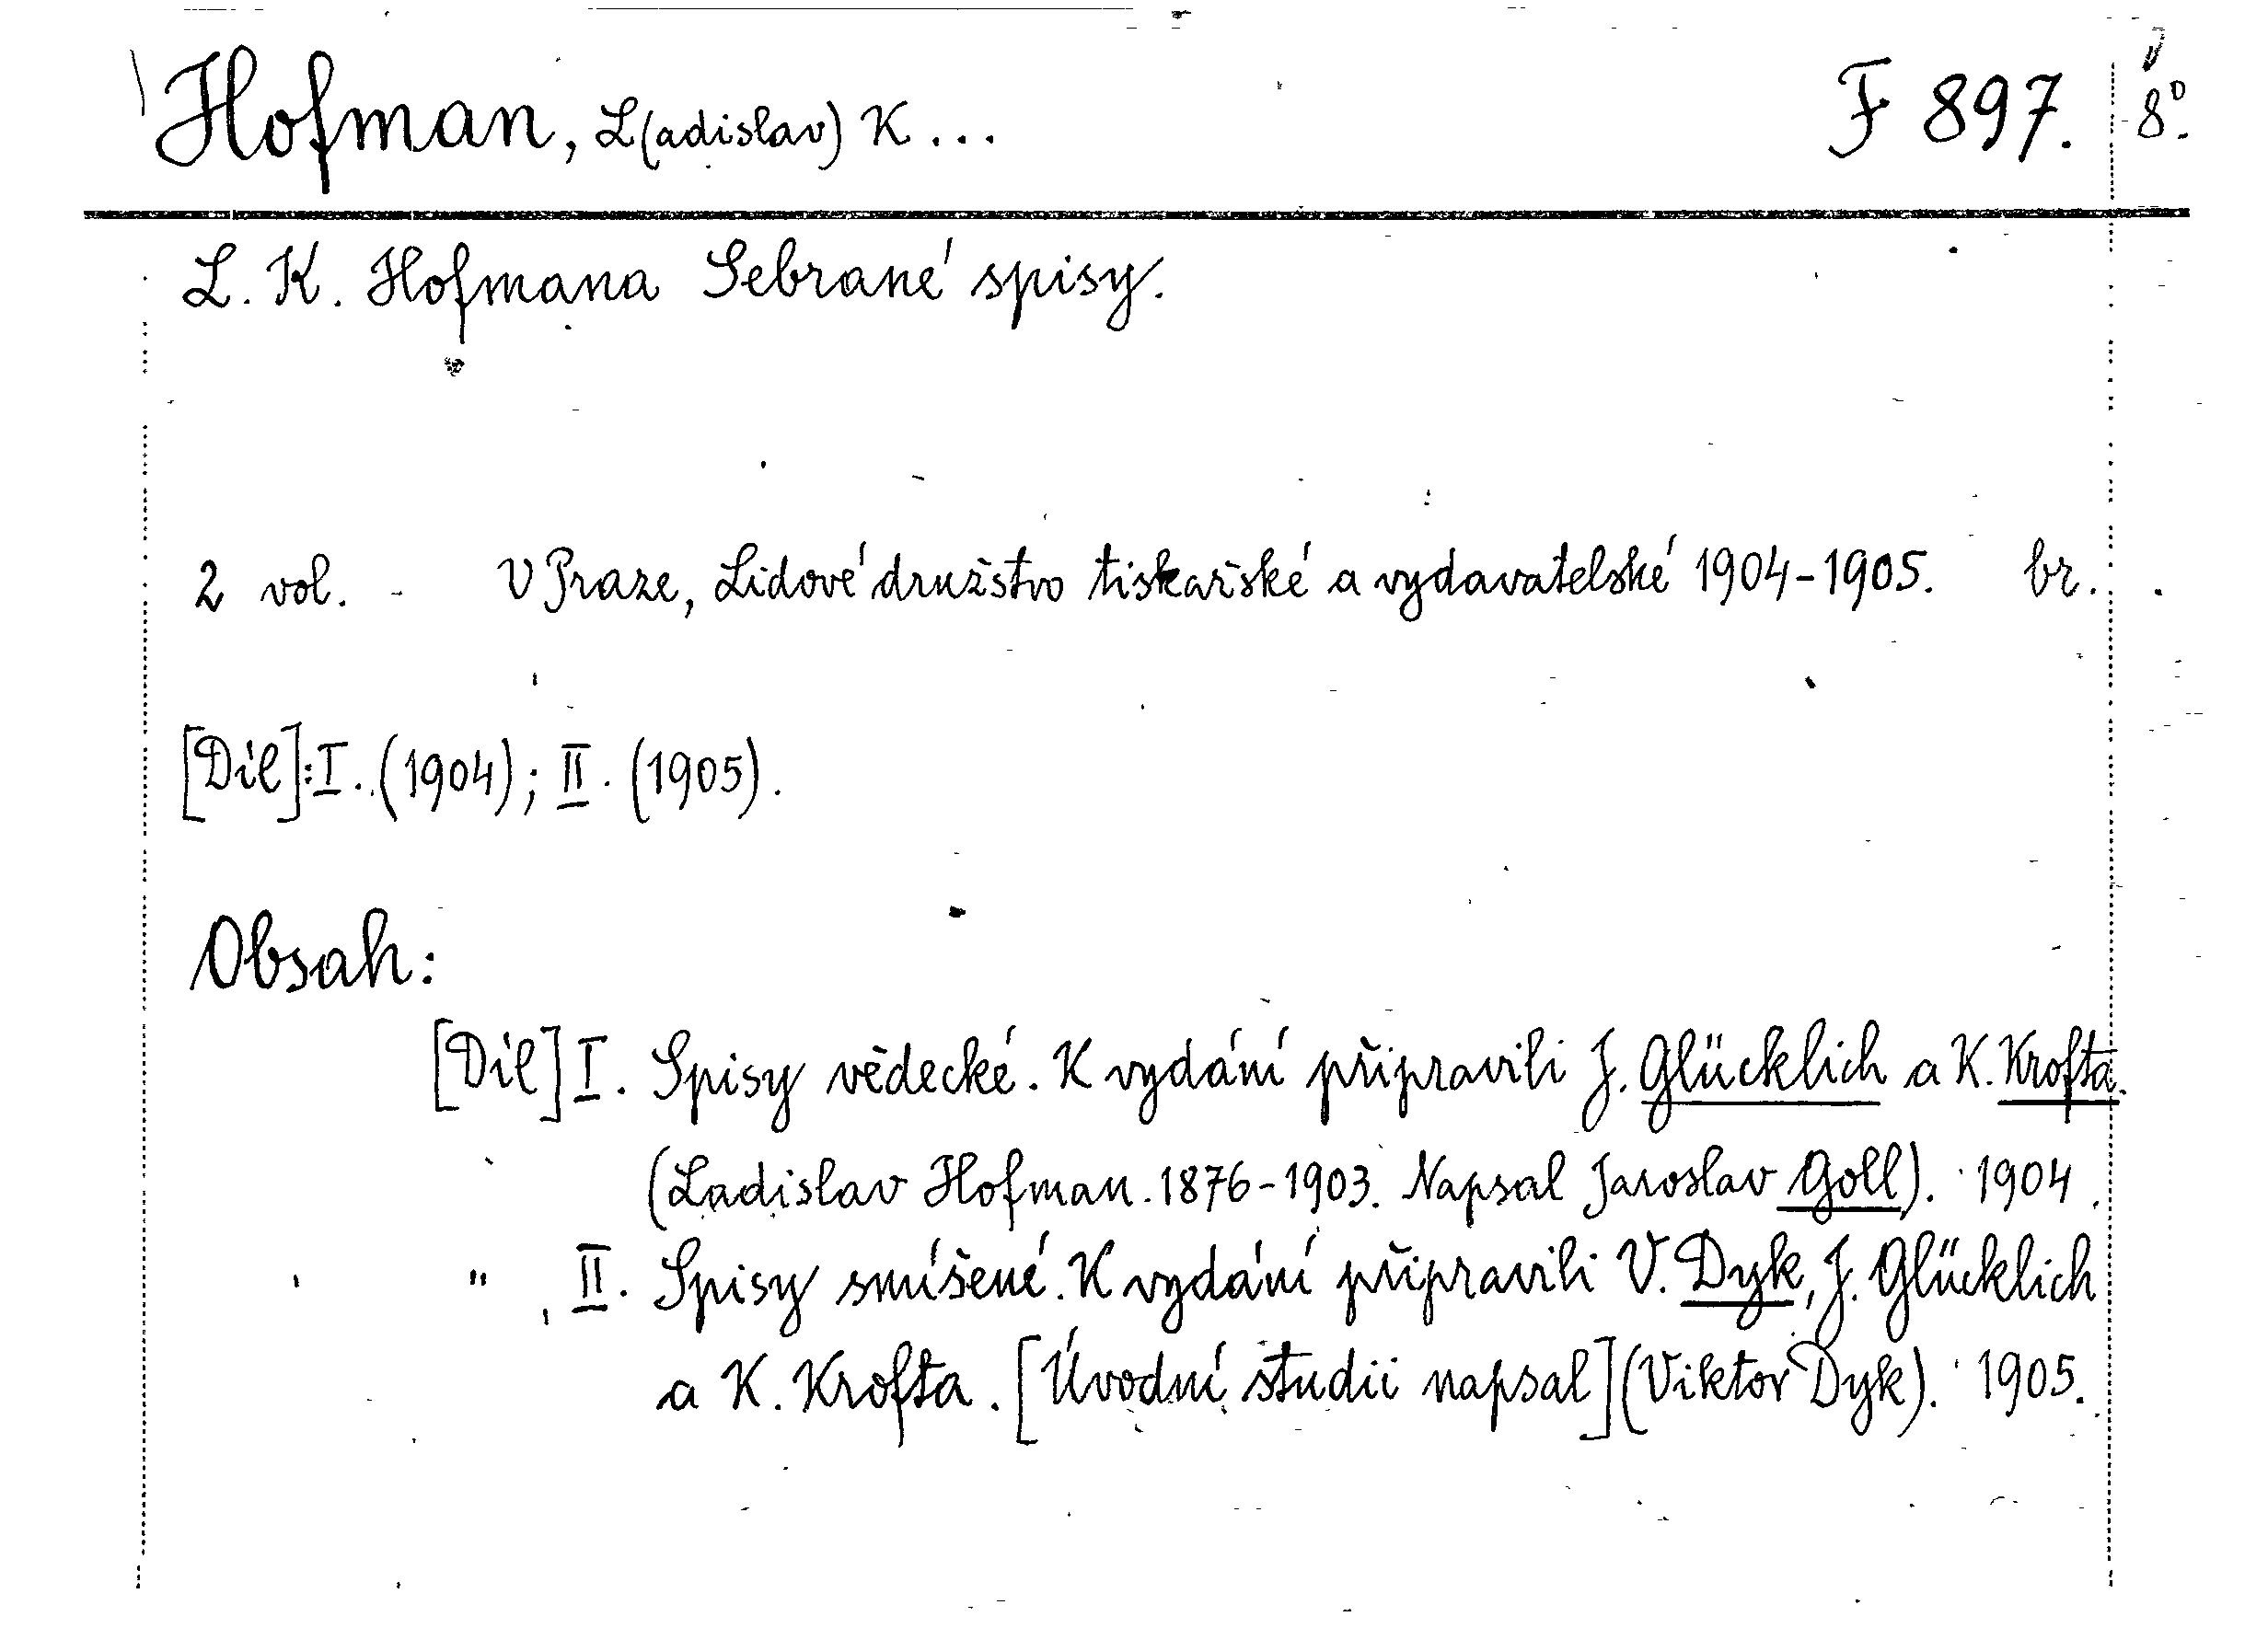 Hofman, L(adislav) K... F 897. 8°.
L. K. Hofmana Sebrané spisy.
2 vol. - V Praze, Lidové družstvo tiskařské a vydavatelské 1904-1905. br.
[Díl]: I. (1904); II. (1905).
Obsah:
[Díl] I. Spisy vědecké. K vydání připravili J. Glücklich a K. Krofta.
(Ladislav Hofman. 1876-1903. Napsal Jaroslav Goll). 1904.
" , II. Spisy smíšené. K vydání připravili V. Dyk, J. Glücklich
a K. Krofta. [Úvodní studii napsal] (Viktor Dyk). 1905.